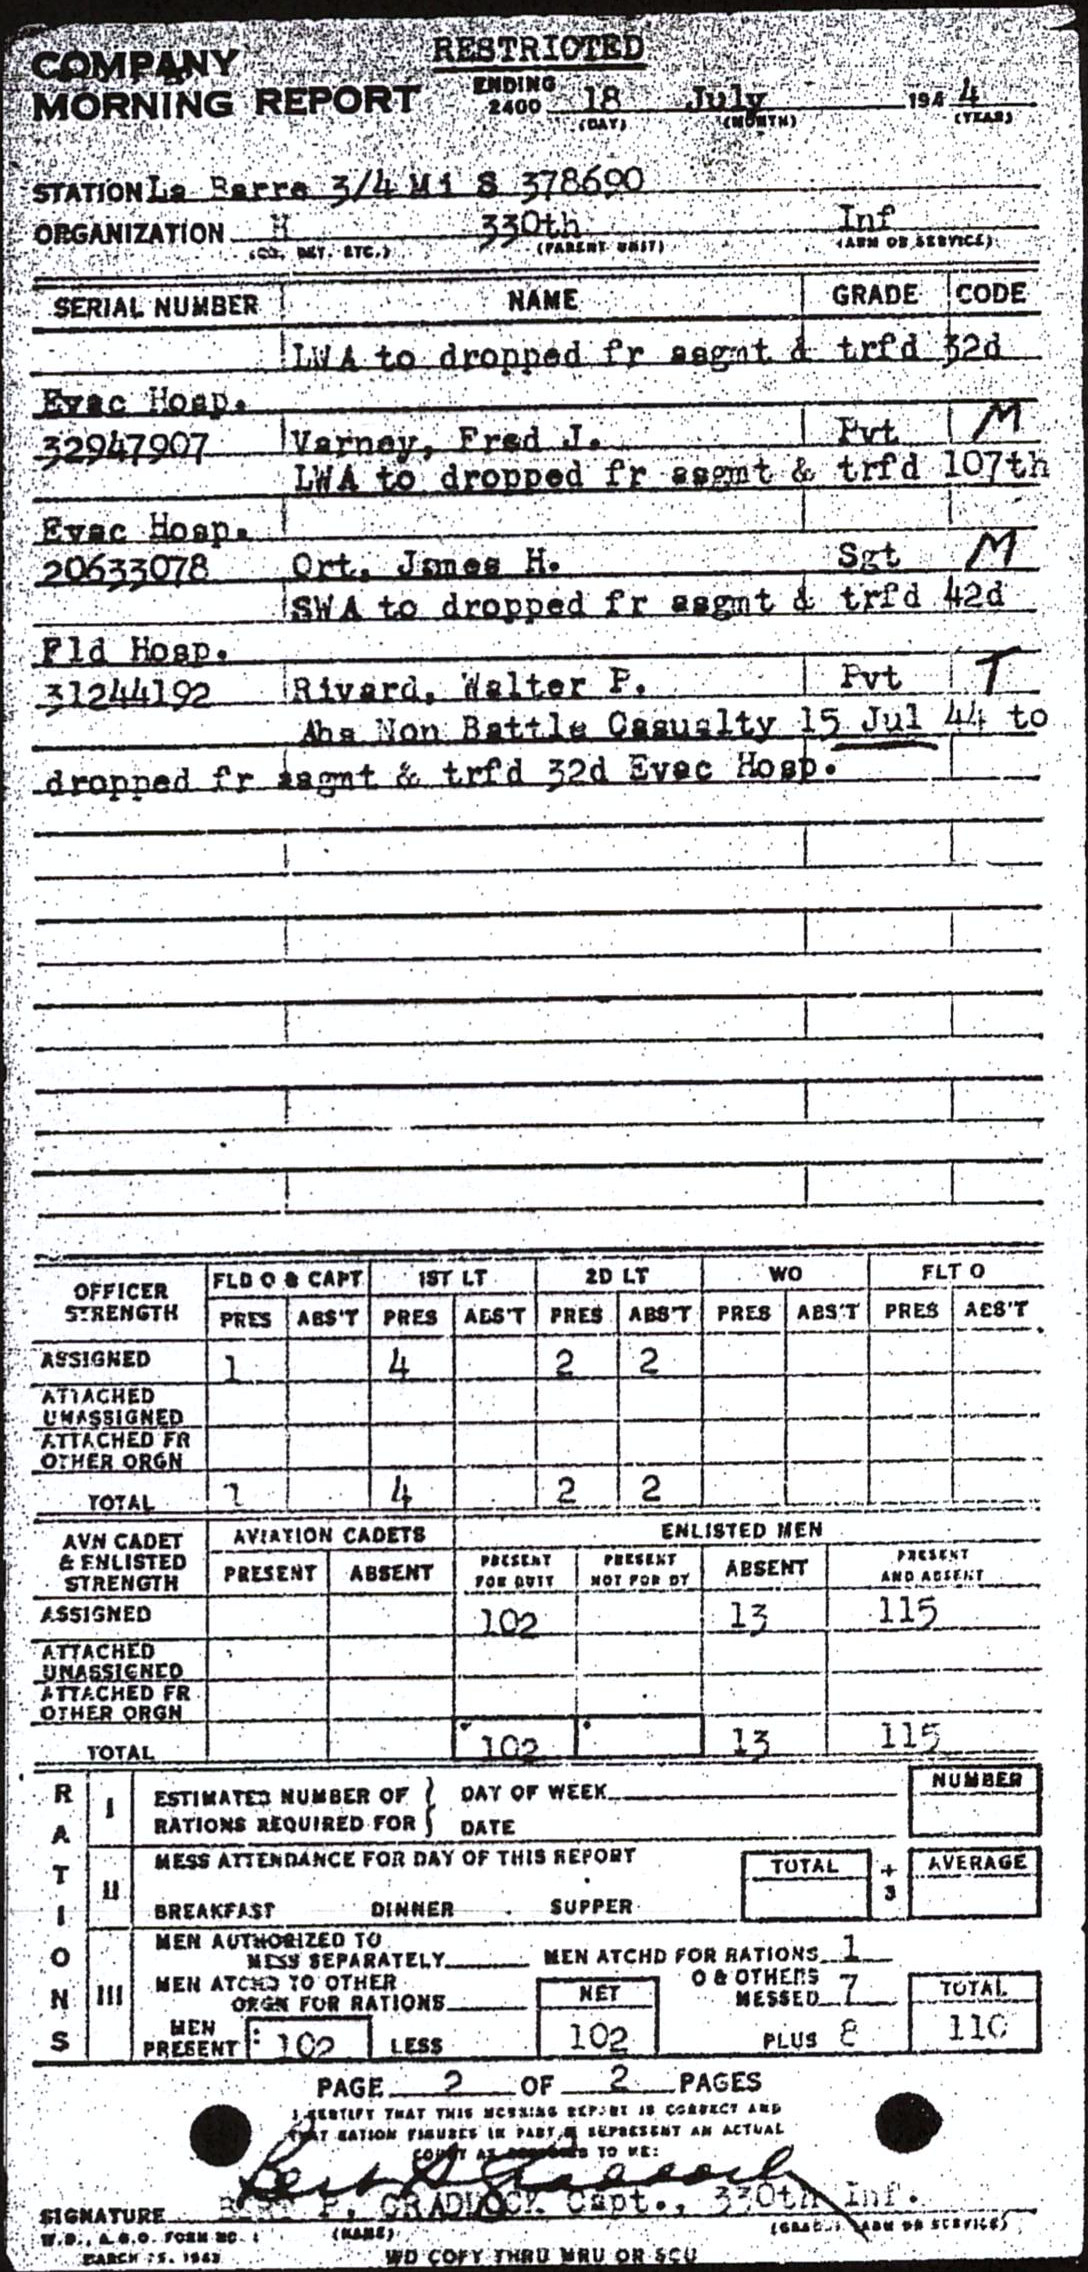 RESTRICTED
COMPANY
MORNING REPORT ENDING 2400 18 July 1944
(DAY) (MONTH) (YEAR)
STATION La Barre 3/4 Mi S 378690
ORGANIZATION H 330th Inf
(CO. DET. ETC.) (PARENT UNIT) (ARM OR SERVICE)
SERIAL NUMBER NAME GRADE CODE
LWA to dropped fr asgmt & trfd 32d
Evac Hosp.
32947907 Varney, Fred J. Pvt M
LWA to dropped fr asgmt & trfd 107th
Evac Hosp.
20633078 Ort, James H. Sgt M
SWA to dropped fr asgmt & trfd 42d
Fld Hosp.
31244192 Rivard, Walter P. Pvt T
Abs Non Battle Casualty 15 Jul 44 to
dropped fr asgmt & trfd 32d Evac Hosp.
OFFICER STRENGTH FLD O & CAPT 1ST LT 2D LT WO FLT O
PRES ABS'T PRES ABS'T PRES ABS'T PRES ABS'T PRES ABS'T
ASSIGNED 1 4 2 2
ATTACHED UNASSIGNED
ATTACHED FR OTHER ORGN
TOTAL 1 4 2 2
AVN CADET & ENLISTED STRENGTH AVIATION CADETS ENLISTED MEN
PRESENT ABSENT PRESENT FOR DUTY PRESENT NOT FOR DY ABSENT PRESENT AND ABSENT
ASSIGNED 102 13 115
ATTACHED UNASSIGNED
ATTACHED FR OTHER ORGN
TOTAL 102 13 115
RATIONS
I ESTIMATED NUMBER OF RATIONS REQUIRED FOR DAY OF WEEK DATE NUMBER
II MESS ATTENDANCE FOR DAY OF THIS REPORT TOTAL ÷ 3 AVERAGE
BREAKFAST DINNER SUPPER
III MEN AUTHORIZED TO MESS SEPARATELY MEN ATCHD FOR RATIONS 1
MEN ATCHD TO OTHER ORGN FOR RATIONS NET O & OTHERS MESSED 7 TOTAL
MEN PRESENT 102 LESS 102 PLUS 8 110
PAGE 2 OF 2 PAGES
I CERTIFY THAT THIS MORNING REPORT IS CORRECT AND
THAT RATION FIGURES IN PART REPRESENT AN ACTUAL
COUNT AS REPORTED TO ME:
SIGNATURE P. CRADDOCK Capt., 330th Inf.
W.D., A.G.O. FORM NO. 1 (NAME) (GRADE, ARM OR SERVICE)
MARCH 15, 1943
WD COPY THRU MRU OR SCU